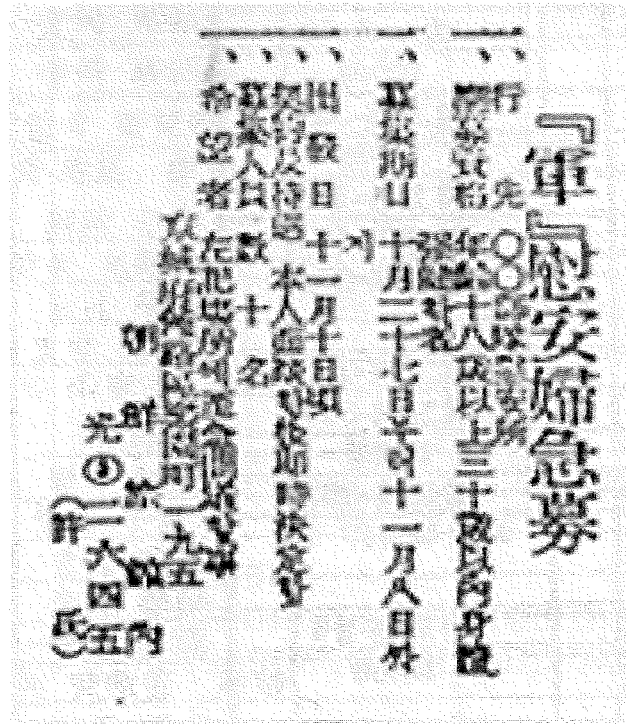 『軍』慰安婦急募
一、行先 ○○部隊慰安所
一、應募資格 年齡十八歲以上三十歲以內身體
强健者
一、募集期日 十月二十七日부터十一月八日外
지
一、出發日 十一月十日頃
一、契約及待遇 本人面談後卽時決定함
一、募集人員 數十名
一、希望者 左記場所에至急問議할事
京城府鍾路區樂園町一九五
朝鮮旅館內
光③二六四五
(許氏)